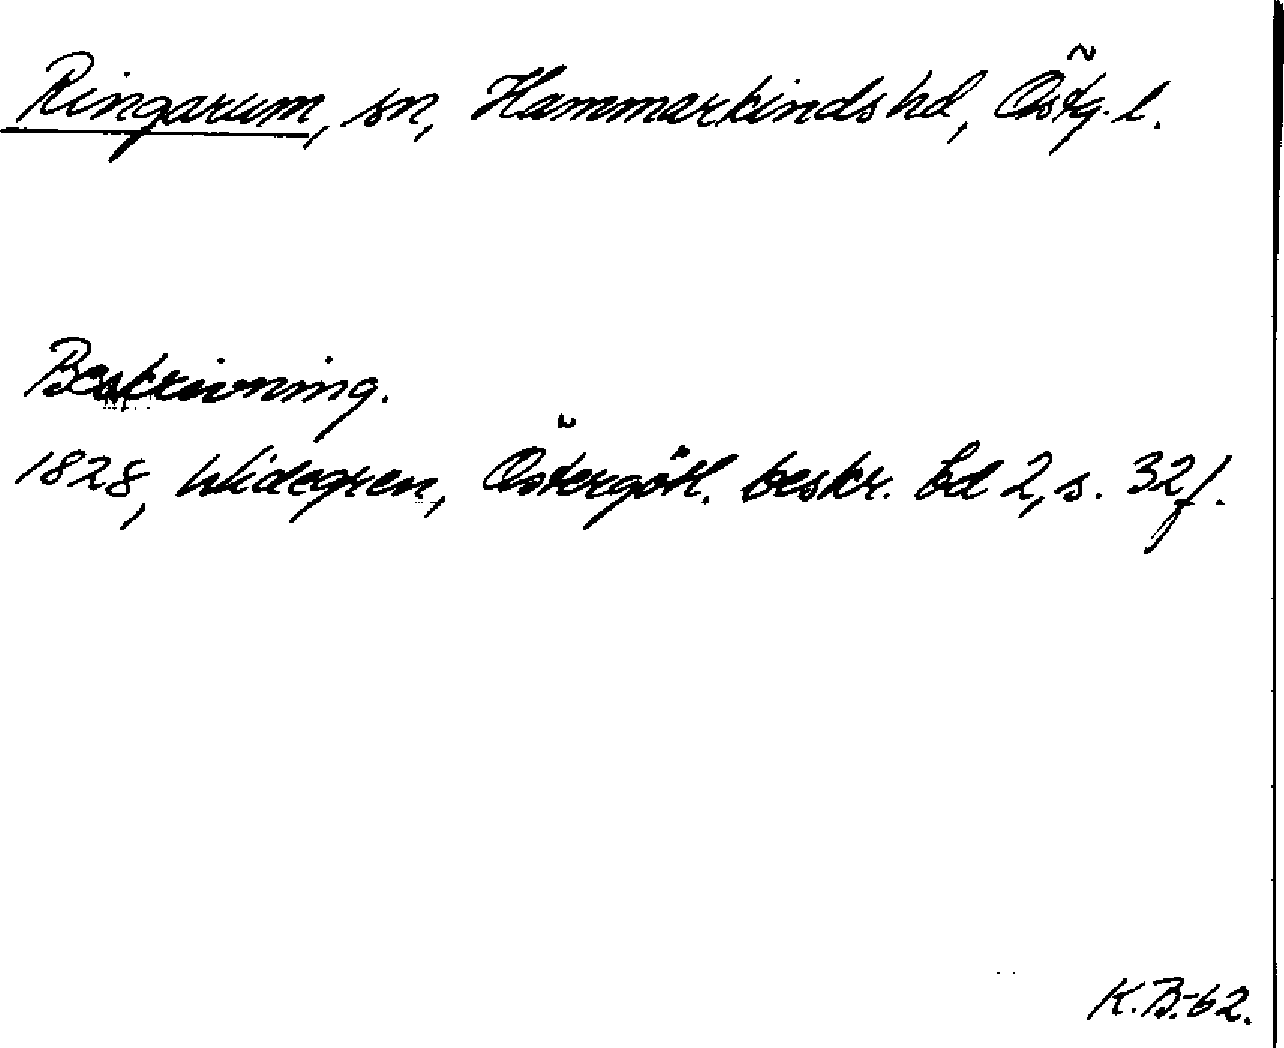 Ringarum, sn, Hammarkinds hd, Östg. l.
Beskrivning.
1828, Widegren, Östergötl. beskr. bd 2, s. 32f.
K.B-62.